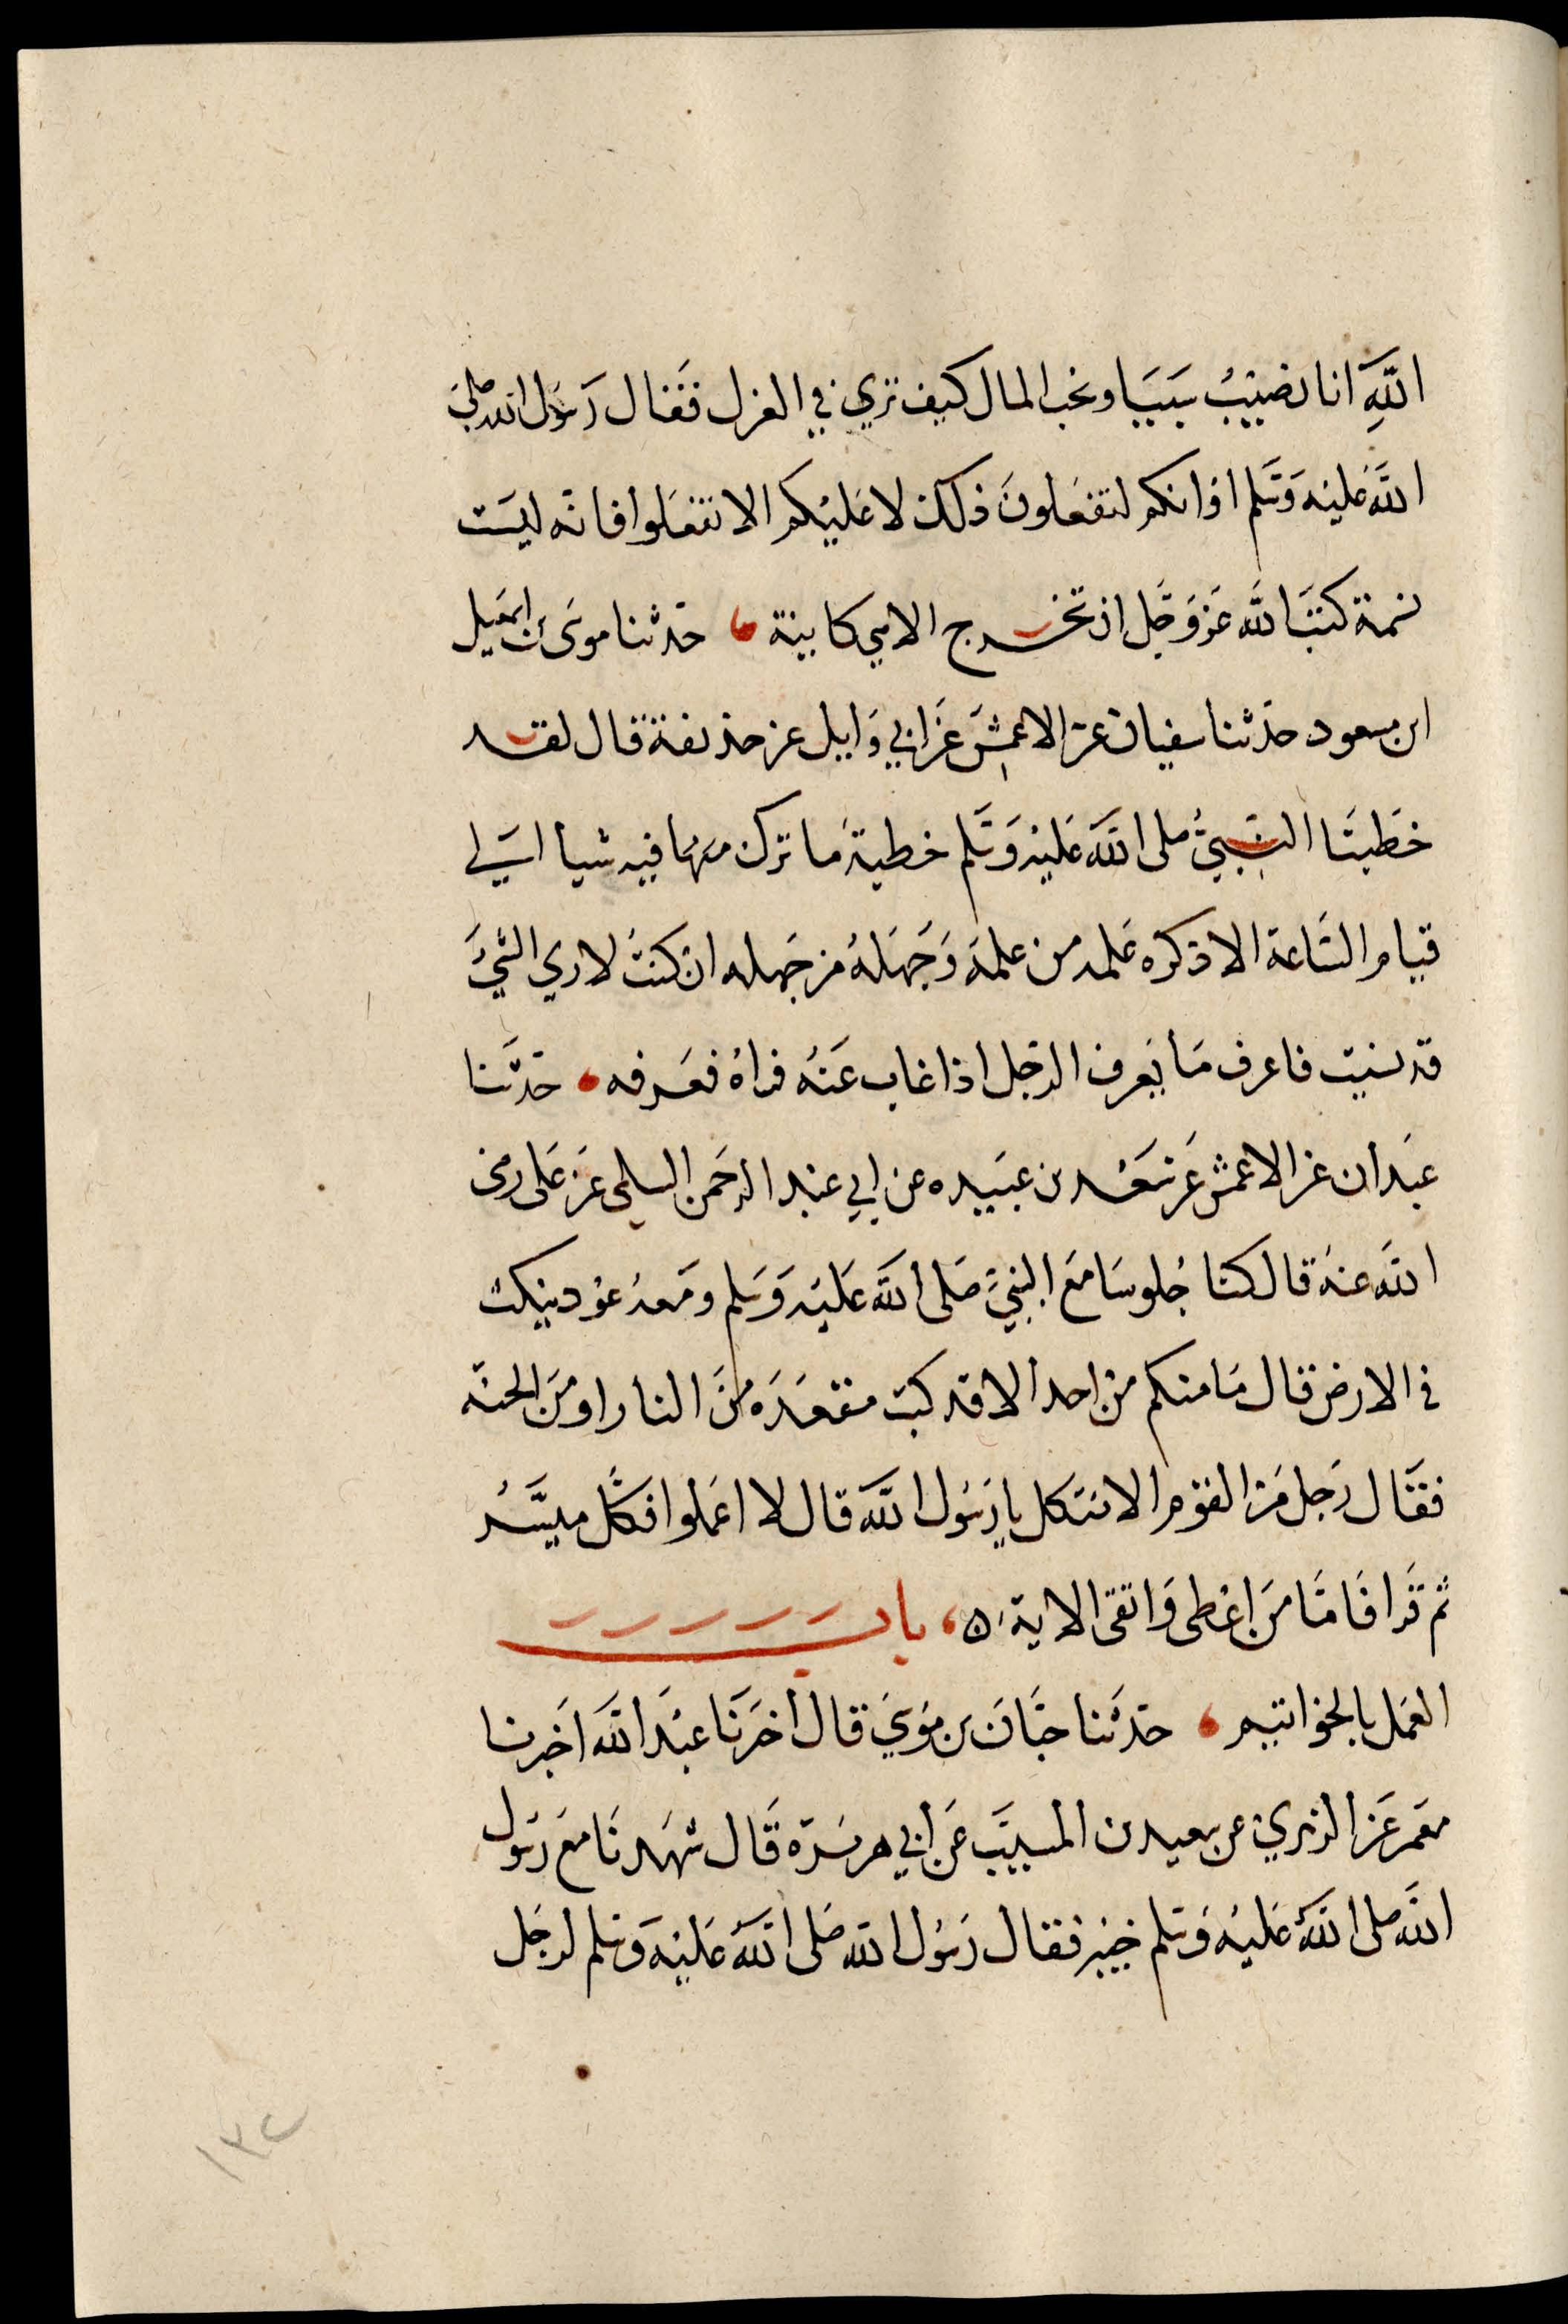 الله انا نصيب سبيا ونحب المال كيف تري في العزل فقال رسول الله صلى
الله عليه وسلم اوانكم لتفعلون ذلك لا عليكم الا تفعلوا فانه ليست
نسمة كتب الله عز وجل ان تخرج الا هي كاينة ، حدثنا موسى بن اسمعيل
ابن مسعود حدثنا سفيان عن الاعمش عن ابي وايل عن حذيفة قال لقد
خطبنا النبي صلى الله عليه وسلم خطبة ما ترك فيه شيا الي
قيام الساعة الا ذكره علمه من علمه وجهله من جهله ان كنت لاري الشيء
قد نسيت فاعرف ما يعرف الرجل اذا غاب عنه فراه فعرفه • حدثنا
عبدان عن الاعمش عن سعد بن عبيده عن ابي عبد الرحمن السلمي عن على رضى
الله عنه قال كنا جلوسا مع النبي صلى الله عليه وسلم ومعه عود ينكت
في الارض قال ما منكم من احد الا قد كتب مقعده من النار او من الجنة
فقال رجل من القوم الا نتكل يا رسول الله قال لا اعملوا فكل ميسر
ثم قرا فاما من اعطى واتقى الاية ٥ ، باب
العمل بالخواتيم ، حدثنا حبان بن موسي قال اخبرنا عبد الله اخبرنا
معمر عن الزهري عن سعيد بن المسيب عن ابي هريرة قال شهدنا مع رسول
الله صلى الله عليه وسلم خيبر فقال رسول الله صلى الله عليه وسلم لرجل